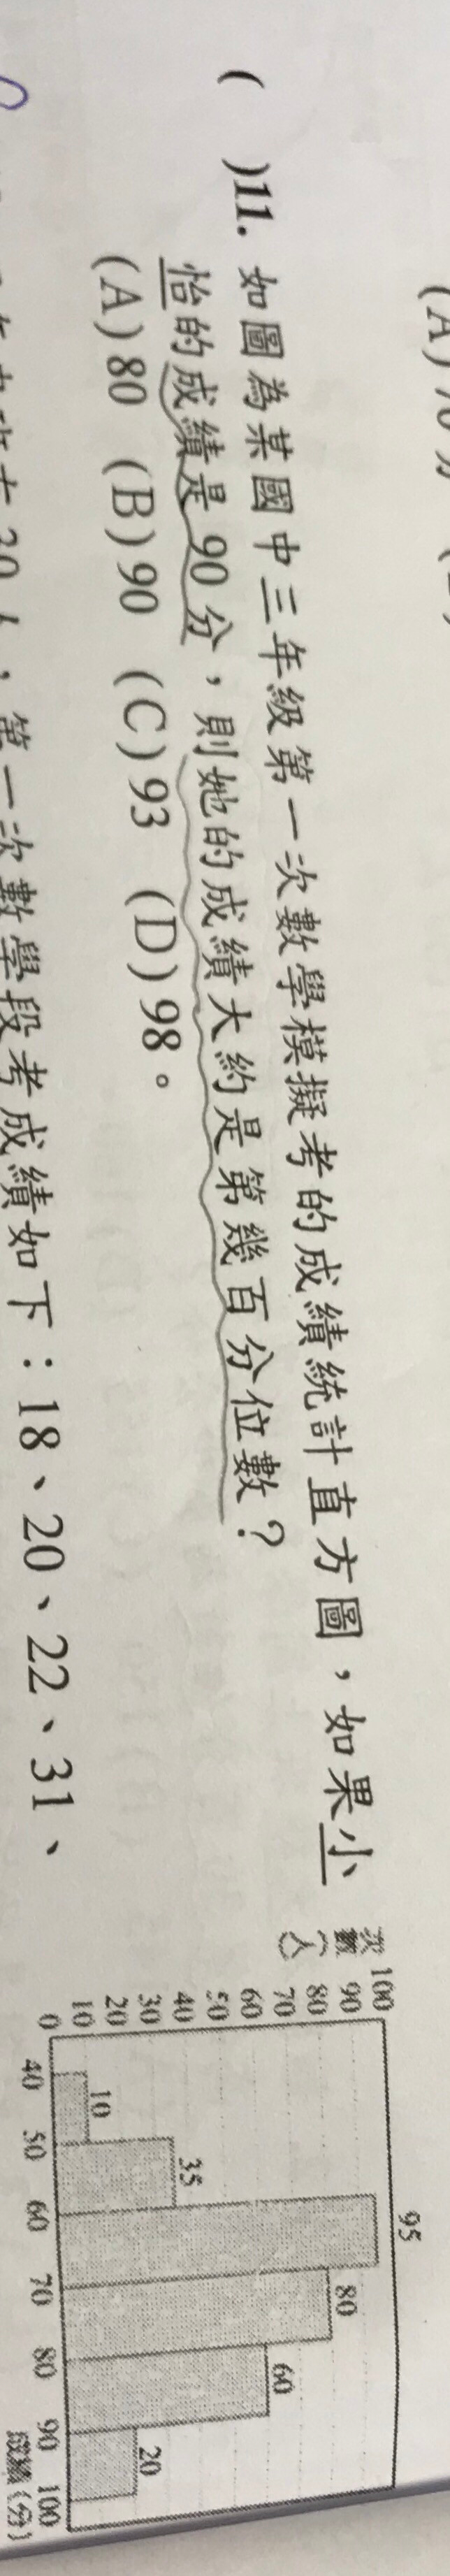 (A)70分
( )11. 如圖為某國中三年級第一次數學模擬考的成績統計直方圖，如果小
怡的成績是90分，則她的成績大約是第幾百分位數？
(A)80 (B)90 (C)93 (D)98。
第一次數學段考成績如下：18、20、22、31、
次數(人)
100
90
80
70
60
50
40
30
20
10
0
10
35
95
80
60
20
40 50 60 70 80 90 100
成績(分)